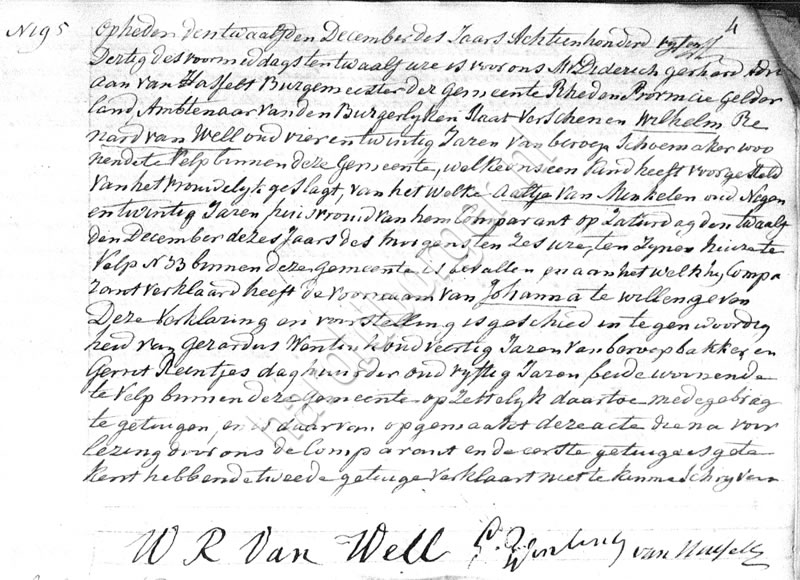 N195
Op heden den twaalfden December des Jaars Achtienhonderd vyf en
Dertig des voormiddags ten twaalf ure is voor ons Mr Diderich Gerhard Adri
aan van Hasselt Burgemeester der Gemeente Rheden Provincie Gelder
land, Ambtenaar van den Burgerlyken Staat verschenen Wilhelm Re
nard van Well oud vier en twintig Jaren van beroep Schoemaker woo
nende te Velp binnen deze Gemeente, welke ons een kind heeft voorgesteld
van het vrouwelyk geslagt, van het welke Aaltje van Minkelen oud Negen
en twintig Jaren, huisvrouw van hem Comparant op Zaturdag den twaalf
den December dezes Jaars des morgens ten zes ure, ten zynen huize te
Velp N 33 binnen deze gemeente is bevallen en aan het welk hy Compa
rant verklaard heeft de voornaam van Johanna te willen geven
Deze verklaring en voorstelling is geschied in tegenwoordig
heid van Gerardus Wentink oud veertig Jaren van beroep bakker en
Gerrit Reintjes daghuurder oud vyftig Jaren beide woonende
te Velp binnen deze Gemeente opzettelyk daartoe medegebrag
te getuigen, en is daarvan opgemaakt deze acte die na voor
lezing door ons de Comparant en de eerste getuige is gete
kent hebbende tweede getuige verklaart niet te kunnen schryven
W R Van Well van Hasselt
hit ophurgel.nl